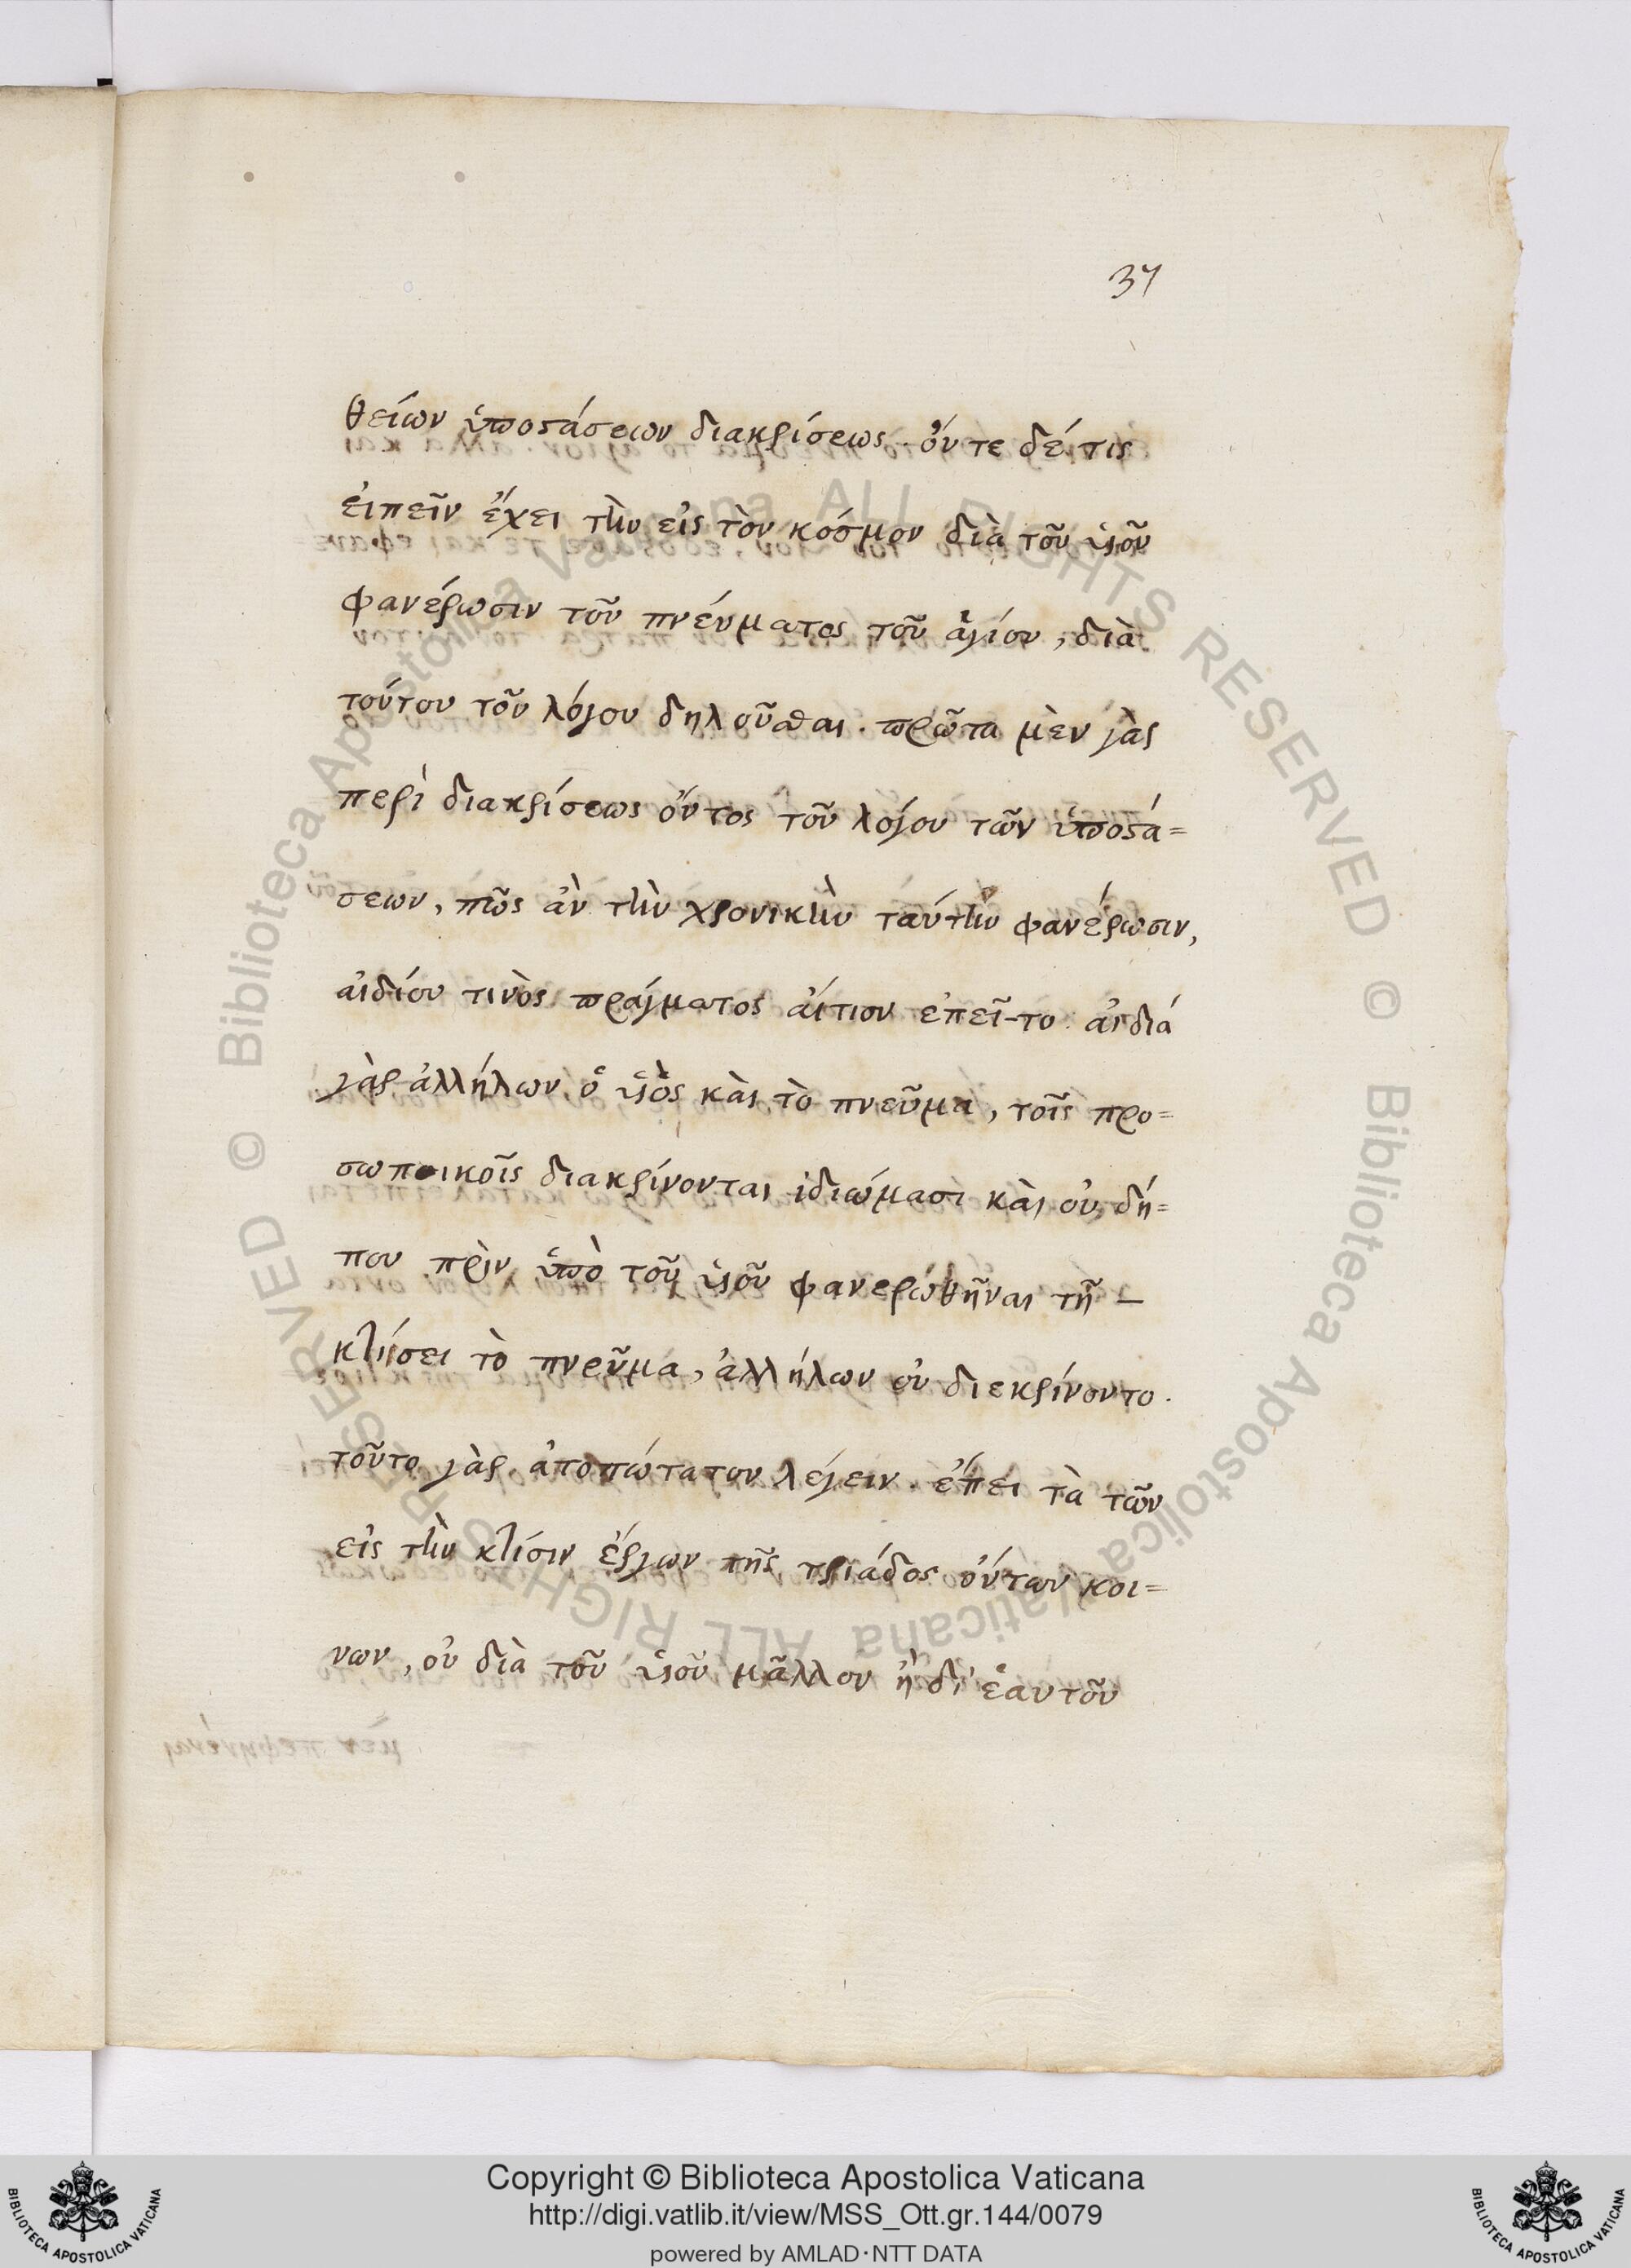 37
θείων ὑποστάσεων διακρίσεως. ὄυτε δέ τις
ἐιπεῖν ἔχει τὴν εἰς τὸν κόσμον διὰ τοῦ ὑιοῦ
φανέρωσιν τοῦ πνέυματος τοῦ ἁγίου, διὰ
τούτου τοῦ λόγου δηλοῦσθαι. πρῶτα μὲν γὰρ
περὶ διακρίσεως ὄντος τοῦ λόγου τῶν ὑποστά=
σεων, πῶς ἀν τὴν χρονικὴν ταύτην φανέρωσιν,
αἰδίου τινὸς πράγματος ἄιτιον ἐπεῖ-το. ἀιδιά
γὰρ ἀλλήλων ὁ ὑιὸς κὰι τὸ πνεῦμα, τοῖς προ=
σωποικοῖς διακρίνονται ἰδιώμασι κὰι οὐ δή=
που πρὶν ὑπὸ τοῦ ὑιοῦ φανερωθῆναι τῇ –
κλίσει τὸ πνεῦμα, ἀλλήλων οὐ διεκρίνοντο.
τοῦτο γὰρ ἀτοπώτατον λέγειν. ἔπει τὰ τῶν
εἰς τὴν κλίσιν ἔργων τῆς τριάδος ὄντων κοι=
νων, οὐ διὰ τοῦ ὑιοῦ μᾶλλον ἢ δι' ἑαυτοῦ
© Biblioteca Apostolica Vaticana ALL RIGHTS RESERVED © Biblioteca Apostolica Vaticana ALL RIGHTS RESERVED
Copyright © Biblioteca Apostolica Vaticana
http://digi.vatlib.it/view/MSS_Ott.gr.144/0079
powered by AMLAD·NTT DATA
BIBLIOTECA APOSTOLICA VATICANA
BIBLIOTECA APOSTOLICA VATICANA